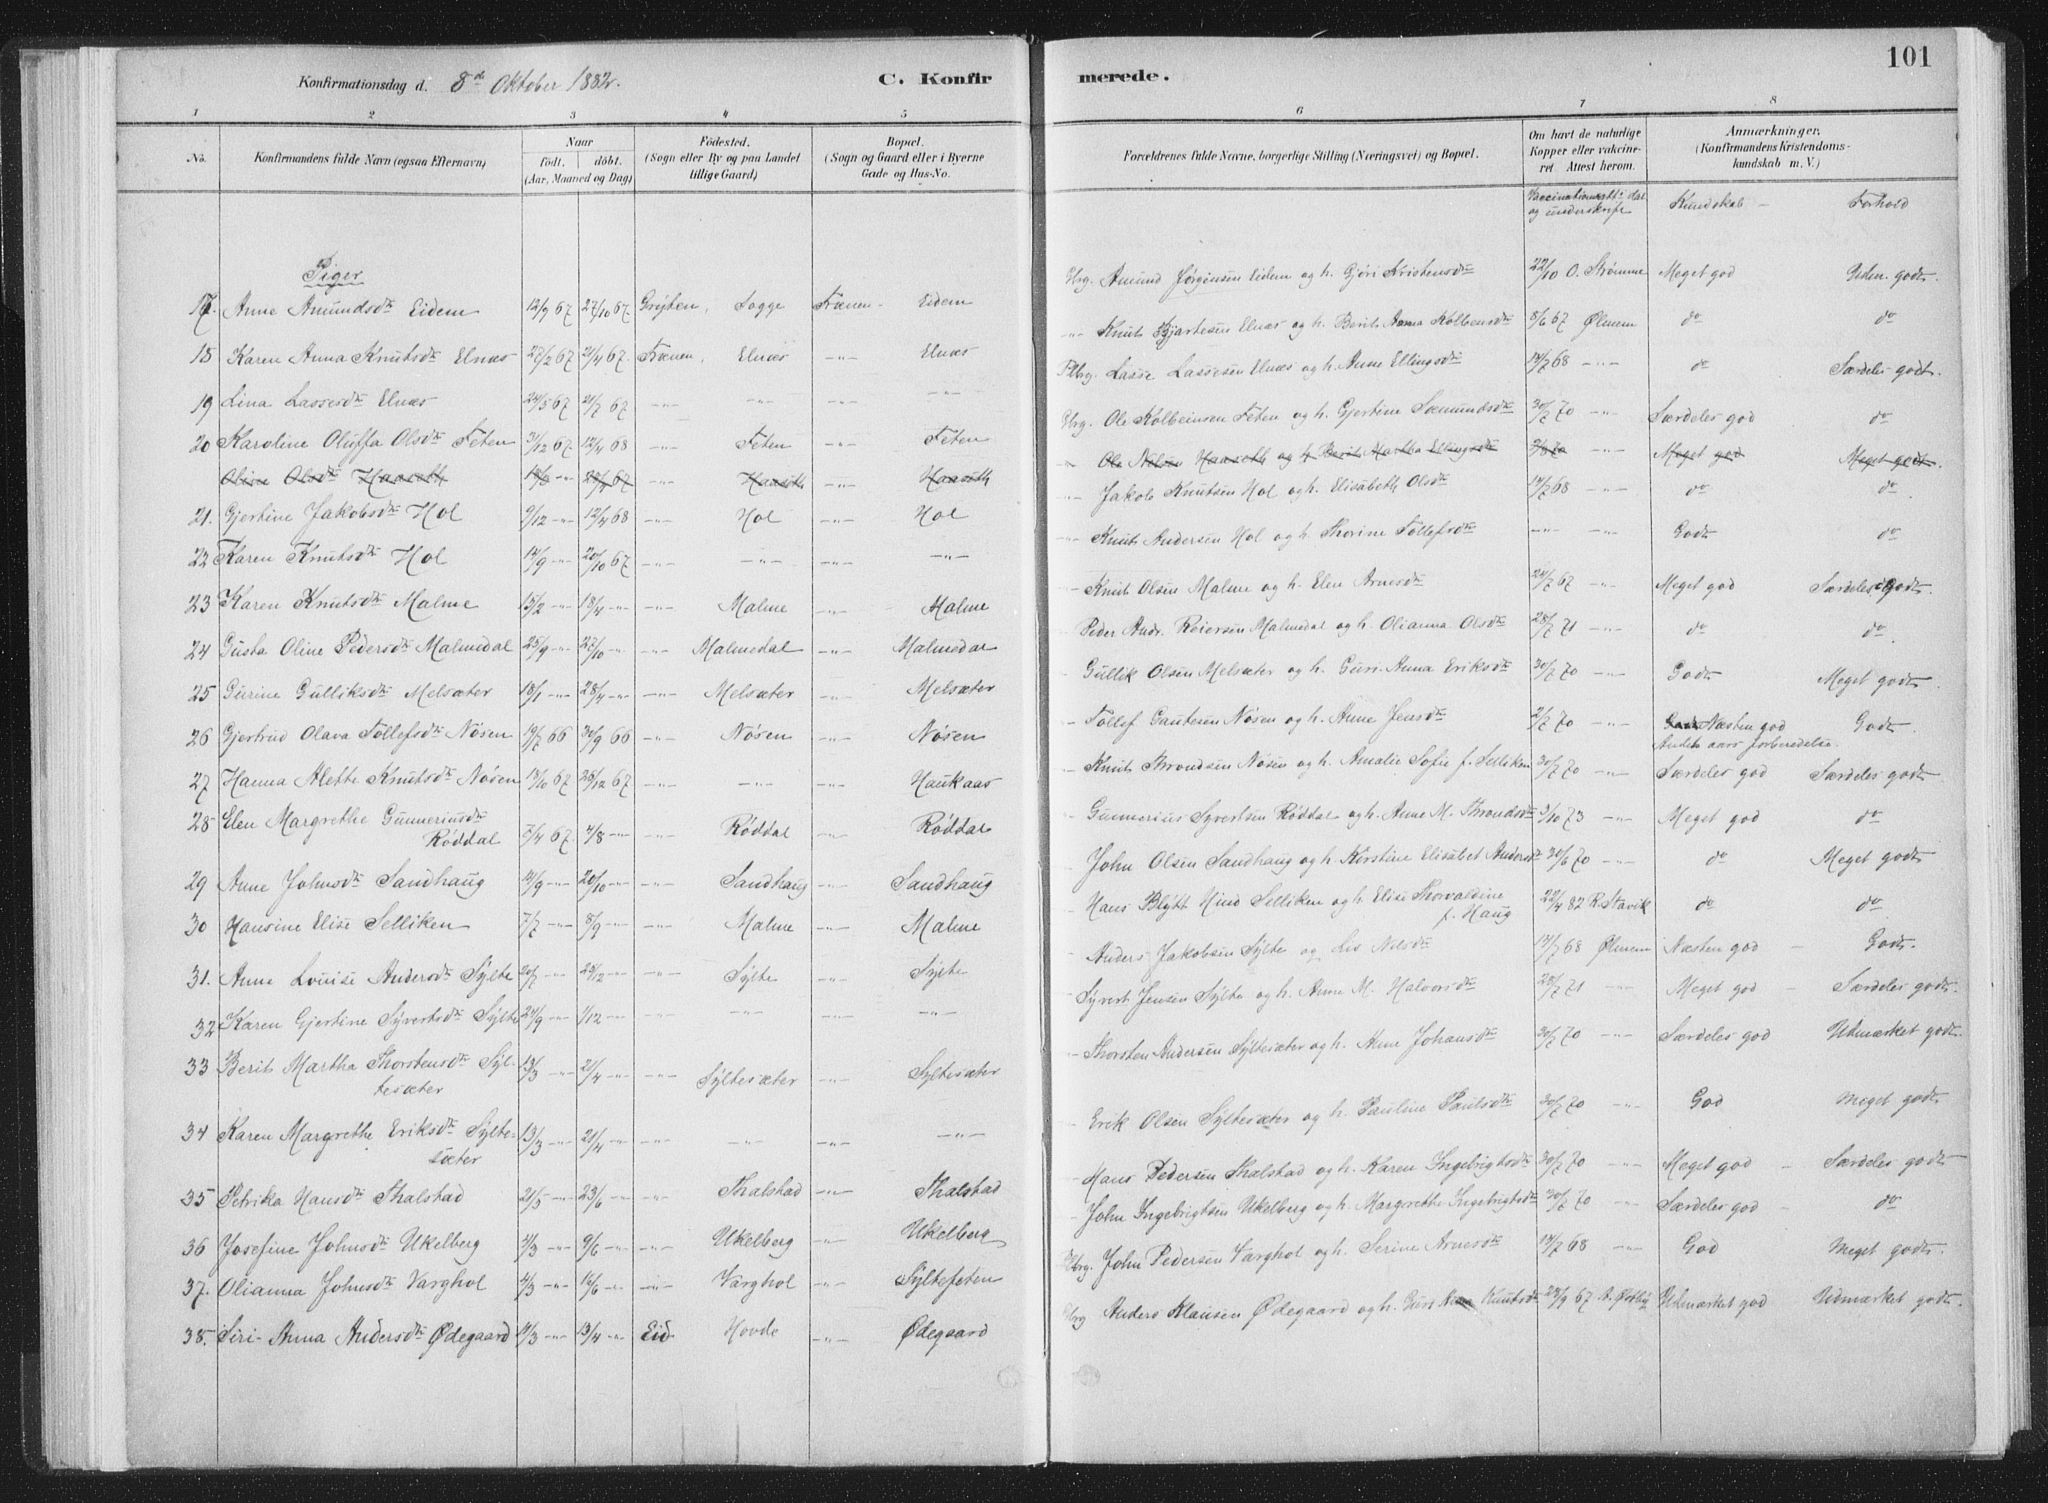 101
Konfirmationsdag d. 8de Oktober 1882.
C. Konfirmerede.
1 2 3 4 5 6 7 8
No.
Konfirmandens fulde Navn (ogsaa Efternavn)
Naar
født. døbt.
(Aar, Maaned og Dag)
Fødested.
(Sogn eller By og paa Landet
tillige Gaard)
Bopæl.
(Sogn og Gaard eller i Byerne
Gade og Hus-No.
Forældrenes fulde Navne, borgerlige Stilling (Næringsvei) og Bopæl.
Om havt de naturlige
Kopper eller vaccine-
ret Attest herom.
Anmærkninger.
(Konfirmandens Kristendoms-
kundskab m. V.)
og underskrift Kundskab – Forhold
Piger
17. Anne Amundsdtr Eidem 12/9 67 27/10 67 Grytten, Sogge Frænen - Eidem
Amund Jørgensen Eidem og h. Gjøri Kristensdtr 22/10 O. Strømme Meget god Uden. godt
18 Karen Anna Knutsdtr Elnæs 27/2 67 21/4 67. Frænen, Elnæs -"- Elnæs
Knut Bjartesen Elnæs og h. Berit Anna Kolbensdtr 8/6 67 Ølmem do do
19 Lina Lassesdtr Elnæs 24/5 67 21/7 67 -"- -"- -"-
Lasse Lassesen Elnæs og h. Anne Ellingsdtr 14/7 68 -"- do Særdeles godt.
20 Karoline Oluffa Olsdtr Feten 31/12 67 12/4 68 -"- Feten -"- Feten
Ole Kolbeinsen Feten og h. Gjertine Sæmundsdtr 30/7 70 -"- Særdeles god do
Oline Olsdtr Haaseth -"- Haaseth -"- Haaseth
Ole Nilsen Haaseth og h. Berit Martha Ellingsdtr -"- Meget god Meget godt.
21. Gjertine Jakobsdtr Hol 9/12 -"- 12/4 68 -"- Hol -"- Hol
Jakob Knutsen Hol og h. Elisabeth Olsdtr 14/7 68 -"- do do
22 Karen Knutsdtr Hol 14/9 -"- 20/10 67 -"- -"- -"- -"-
Knut Andersen Hol og h. Thorine Tollefsdtr -"- -"- Godt do
23 Karen Knutsdtr Malme 15/2 -"- 18/4 -"- -"- Malme -"- Malme
Knut Olsen Malme og h. Elen Arnesdtr 24/7 67 -"- Meget god Særdeles godt.
24 Gusta Oline Pedersdtr Malmedal 25/9 -"- 27/10 -"- -"- Malmedal -"- Malmedal
Peder Andr. Reiersen Malmedal og h. Olianna Olsdtr 28/7 71 -"- do do
25 Gurine Gulliksdtr Melsæter 18/1 -"- 28/4 -"- -"- Melsæter -"- Melsæter
Gullik Olsen Melsæter og h. Guri Anna Eriksdtr 30/7 70 -"- Godt Meget godt
26 Gjertrud Olava Tollefsdtr Nøsen 19/7 66 30/9 66 -"- Nøsen -"- Nøsen
Tollef Gautesen Nøsen og h. Anne Jensdtr 2/7 70 -"- Næsten god Godt
Andet aars forberedelse.
27 Hanna Alette Knutsdtr Nøsen 13/10 67 26/12 67 -"- -"- Haukaas
Knut Trondsen Nøsen og h. Amalie Sofie f. Selliken 30/7 70 -"- Særdeles god Særdeles godt
28 Elen Margrethe Gunneriusdtr
Røddal 7/4 67 4/8 -"- -"- Røddal -"- Røddal
Gunnerius Syvertsen Røddal og h. Anne M. Throndsdtr 3/10 73 -"- Meget god do
29 Anne Johnsdtr Sandhaug 14/9 -"- 20/10 -"- -"- Sandhaug -"- Sandhaug
John Olsen Sandhaug og h. Kirstine Elisabet Andersdtr 30/6 70 -"- do Meget godt
30 Hansine Elise Selliken 7/7 -"- 8/9 -"- -"- Malme -"- Malme
Hans Blytt Hind Selliken og h. Elise Thorvaldine
f. Haug 22/4 82 R. Stavik do do
31. Anne Louise Andersdtr Sylte 20/7 -"- 24/2 -"- -"- Sylte -"- Sylte
Anders Jakobsen Sylte og Lis Nilsdtr 14/7 68 Ølmem Næsten god – Godt.
32 Karen Gjertine Syvertsdtr Sylte 24/9 -"- 1/12 -"- -"- -"- -"- -"-
Syvert Jensen Sylte og h. Anne M. Halvorsdtr 28/7 71 -"- Meget god – Særdeles godt.
33 Berit Martha Thorstensdtr Syl-
tesæter 13/3 -"- 21/4 -"- -"- Syltesæter -"- Syltesæter
Thorsten Andersen Syltesæter og h. Anne Johansdtr 30/7 70 -"- Særdeles god Udmærket godt
34 Karen Margrethe Eriksdtr Sylte-
sæter 13/3 -"- 21/4 -"- -"- -"- -"- -"-
Erik Olsen Syltesæter og h. Pauline Paulsdtr 30/7 70 -"- God Meget godt
35 Petrika Hansdtr Thalstad 21/5 -"- 23/6 -"- -"- Thalstad -"- Thalstad
Hans Pedersen Thalstad og h. Karen Ingebrigtsdtr 30/7 70 -"- Meget god – Særdeles godt
36 Josefine Johnsdtr Ukelberg 4/3 -"- 9/6 -"- -"- Ukelberg -"- Ukelberg
John Ingebrigtsen Ukelberg og h. Margrethe Ingebrigtsdtr 30/7 70 -"- Særdeles god – do
37. Olianna Johnsdtr Varghol 4/3 -"- 16/6 -"- -"- Varghol -"- Syltefeten
John Pedersen Varghol og h. Serine Arnesdtr 14/7 68 -"- God Meget godt.
38. Siri Anna Andersdtr Ødegaard 4/3 -"- 13/4 -"- Eid Hovde -"- Ødegaard
Anders Klausen Ødegaard og h. Guri Knutsdtr 24/9 67 Udmærket god Udmærket godt.